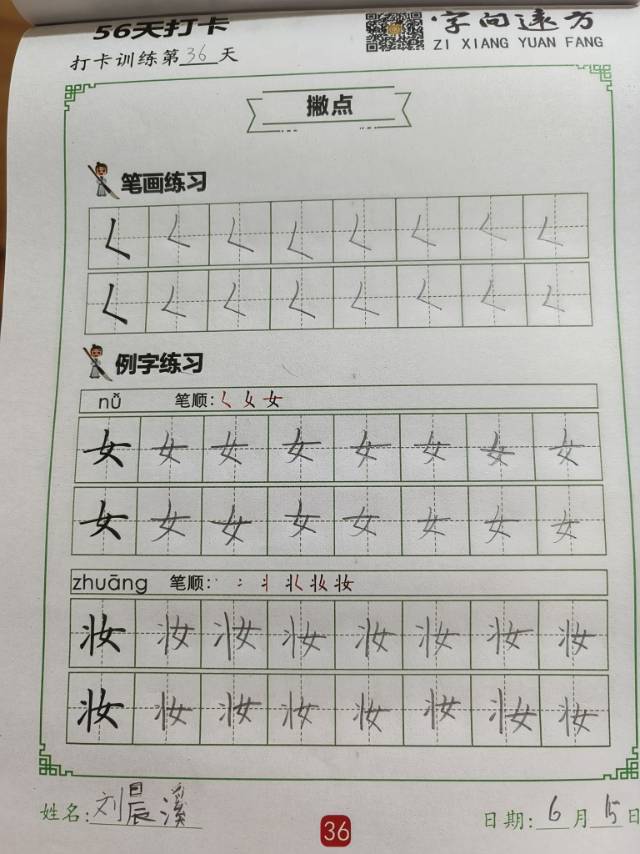 56天打卡
字向远方
ZI XIANG YUAN FANG
打卡训练第36天
撇点
笔画练习
𡿨 𡿨 𡿨 𡿨 𡿨 𡿨 𡿨 𡿨
𡿨 𡿨 𡿨 𡿨 𡿨 𡿨 𡿨 𡿨
例字练习
nǚ 笔顺:
女 女 女 女 女 女 女 女
女 女 女 女 女 女 女 女
zhuāng 笔顺:
妆 妆 妆 妆 妆 妆 妆 妆
妆 妆 妆 妆 妆 妆 妆 妆
姓名:刘晨溪
36
日期:6月15日